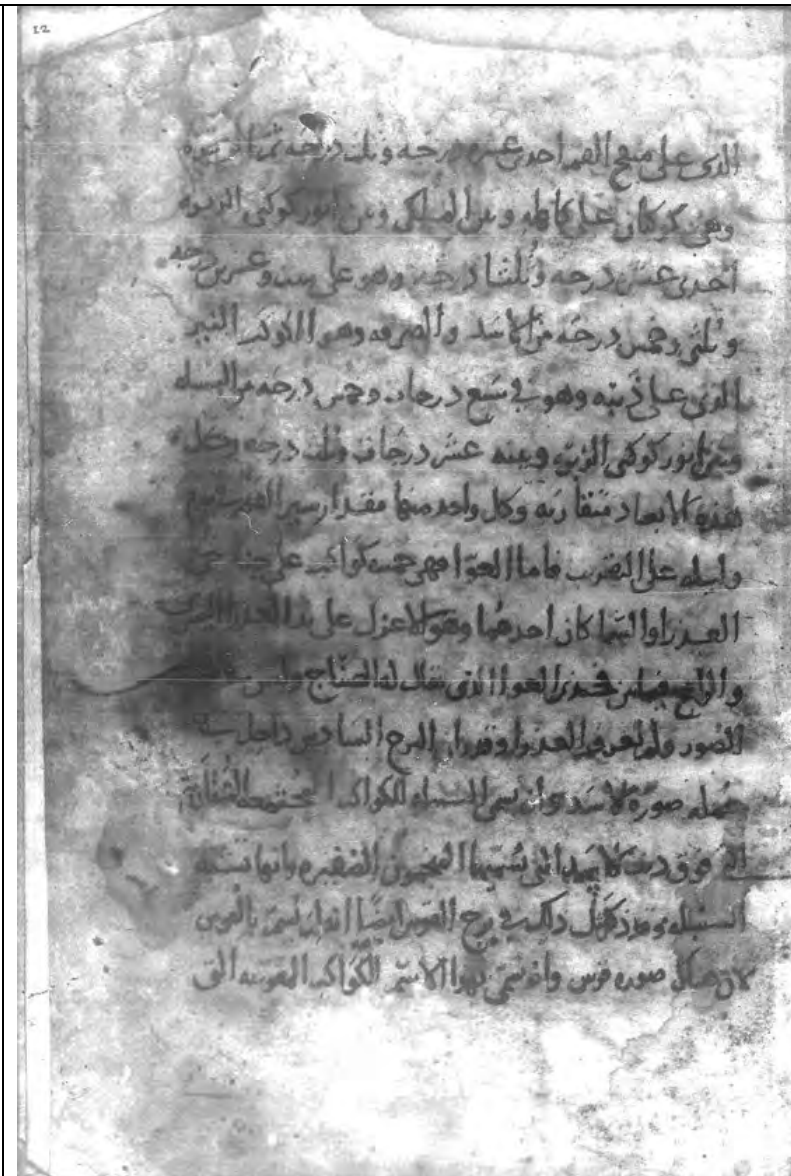 12
الذى على منفح القمر احدى عشره درجه وثلث درجه ثم الزبره
وهى كوكبان على كاهله وبين الملكى وبين انور كوكبى الزبره
احدى عشر درجه وثلثا درجه وهو على ست وعشرين درجه
وثلثى وخمس درجه من الاسد والصرفه وهو الكوكب النير
الذى على ذنبه وهو فى سبع درجات وخمس درجه من السنبله
وبين انور كوكبى الزبره وبينه عشر درجات وثلث درجه وكل
هذه الابعاد متقاربه وكل واحد منها مقدار سير القمر يوم
وليله على التقريب فاما العوا فهى خمسه كواكب على
العذرا والسماكان احدهما وهو الاعزل على يد العذرا
والرامح فيما بين فخذى العوا الذى يقال له الصناج وليس
الصور ولم يعرفوا العذرا وقدروا ان البرج السادس داخل فى
جمله صوره الاسد وان سمى السنبله للكواكب المجتمعه
التى فوق ذنب الاسد التى يسميها المنجمون الضفيره بانها تشبه
السنبله وقد ذكر مثل ذلك فى برج القوس ايضا انه لم يسم بالقوس
لان هناك صوره قوس وانه سمى بهذا الاسم للكواكب المقوسه التى